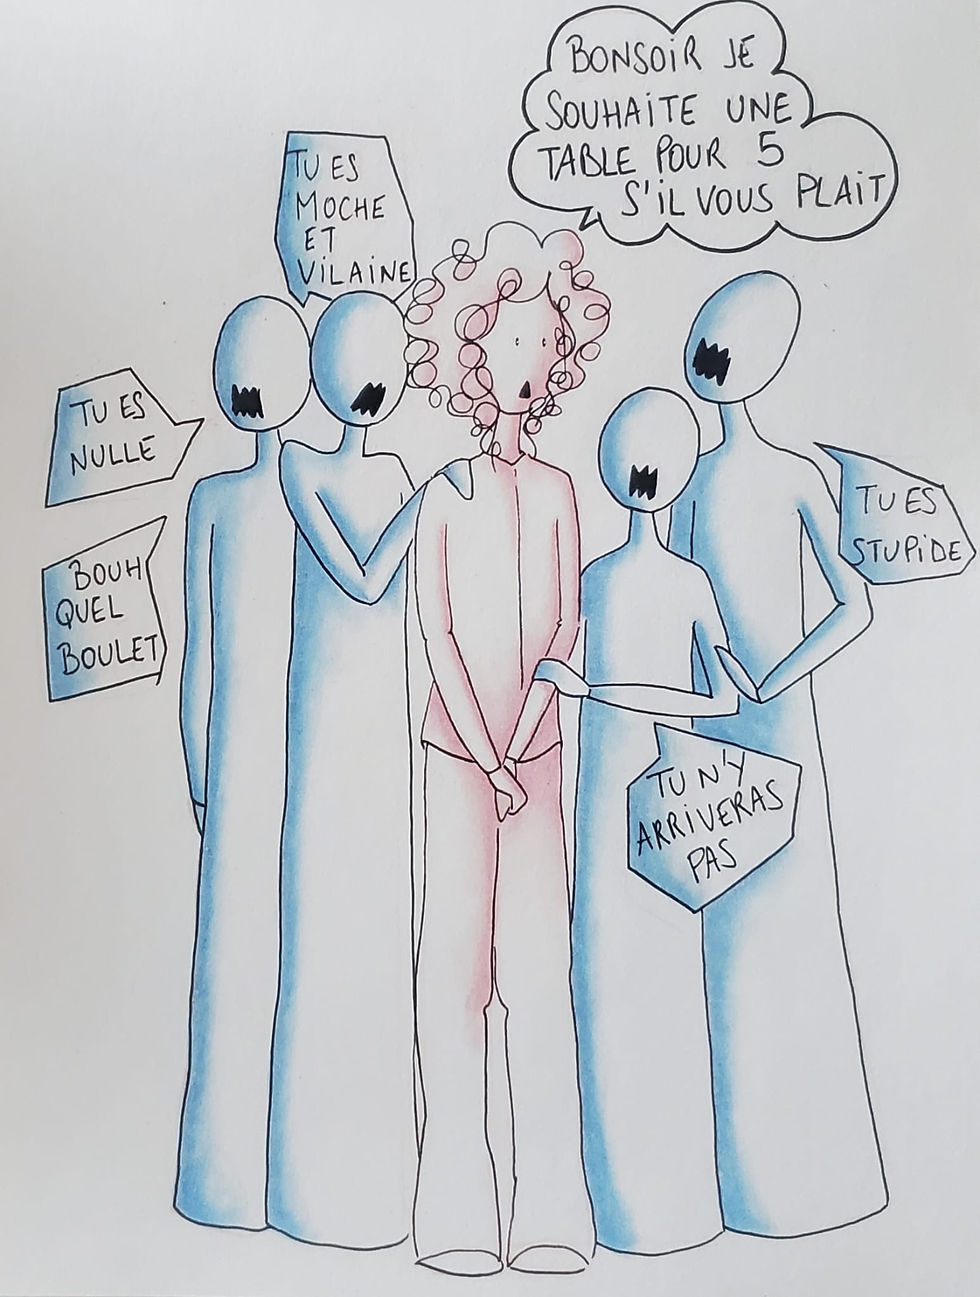 BONSOIR JE
SOUHAITE UNE
TABLE POUR 5
S'IL VOUS PLAIT
TU ES
MOCHE
ET
VILAINE
TU ES
NULLE
BOUH
QUEL
BOULET
TU ES
STUPIDE
TU N'Y
ARRIVERAS
PAS